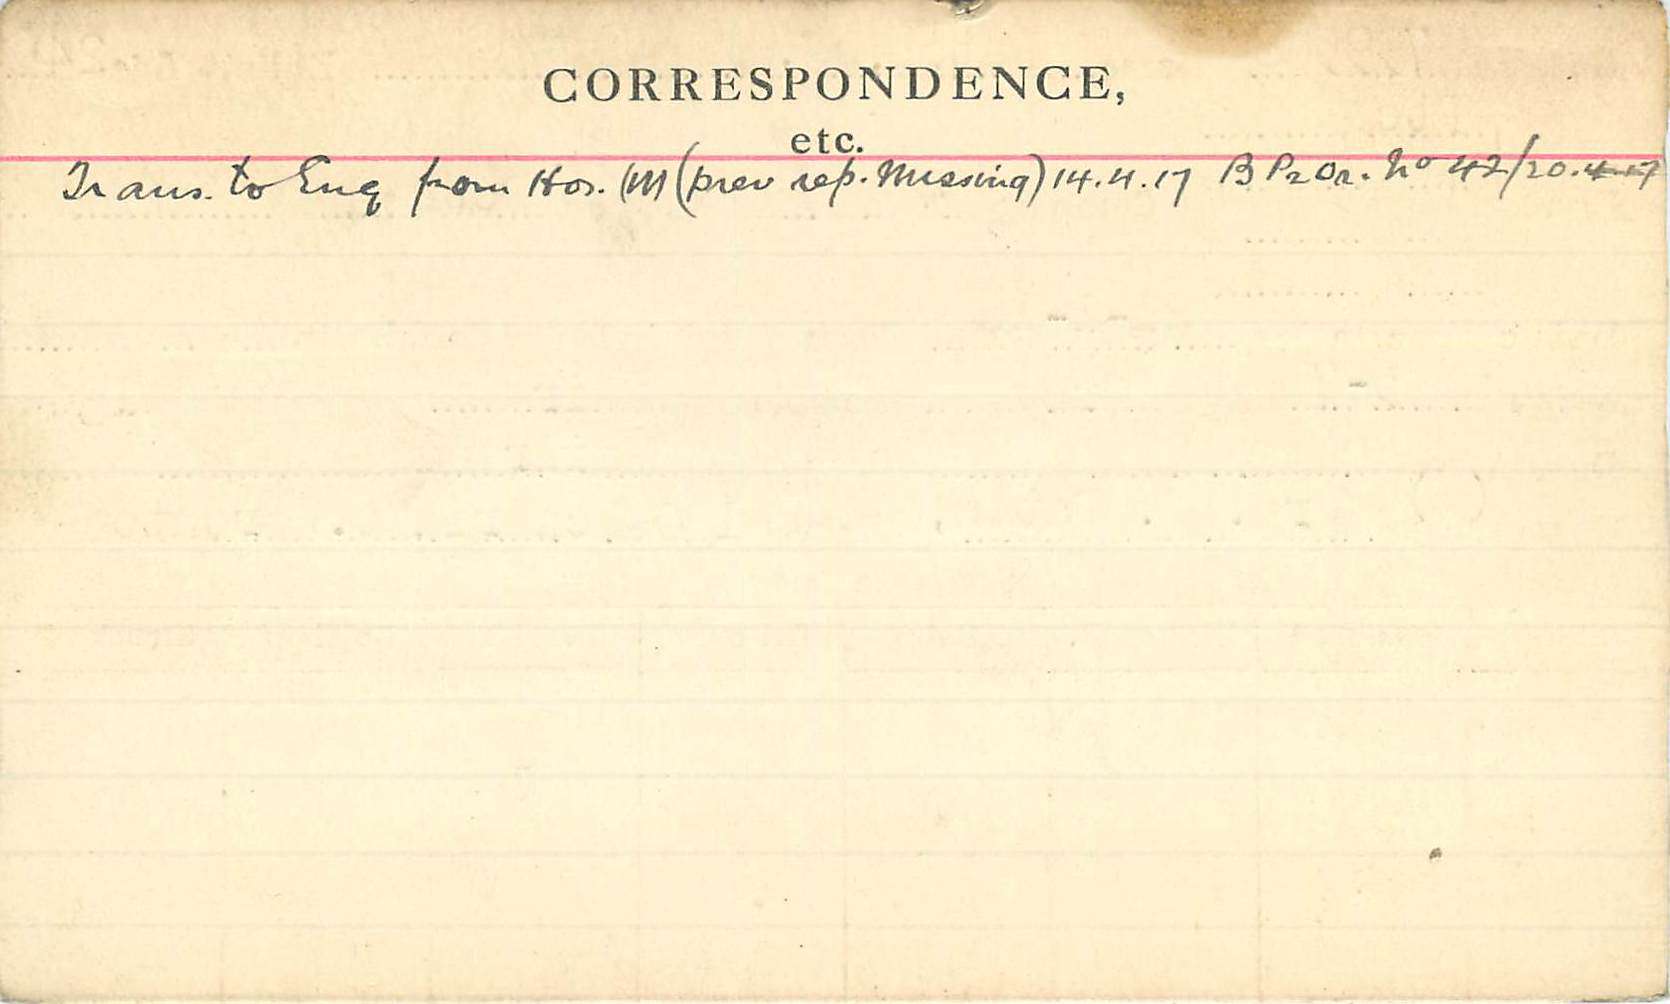 CORRESPONDENCE,
etc.
Trans. to Eng from Hos. (M) (prev rep. Missing) 14.4.17 B Pt 2 Or. No 42/20.4.17